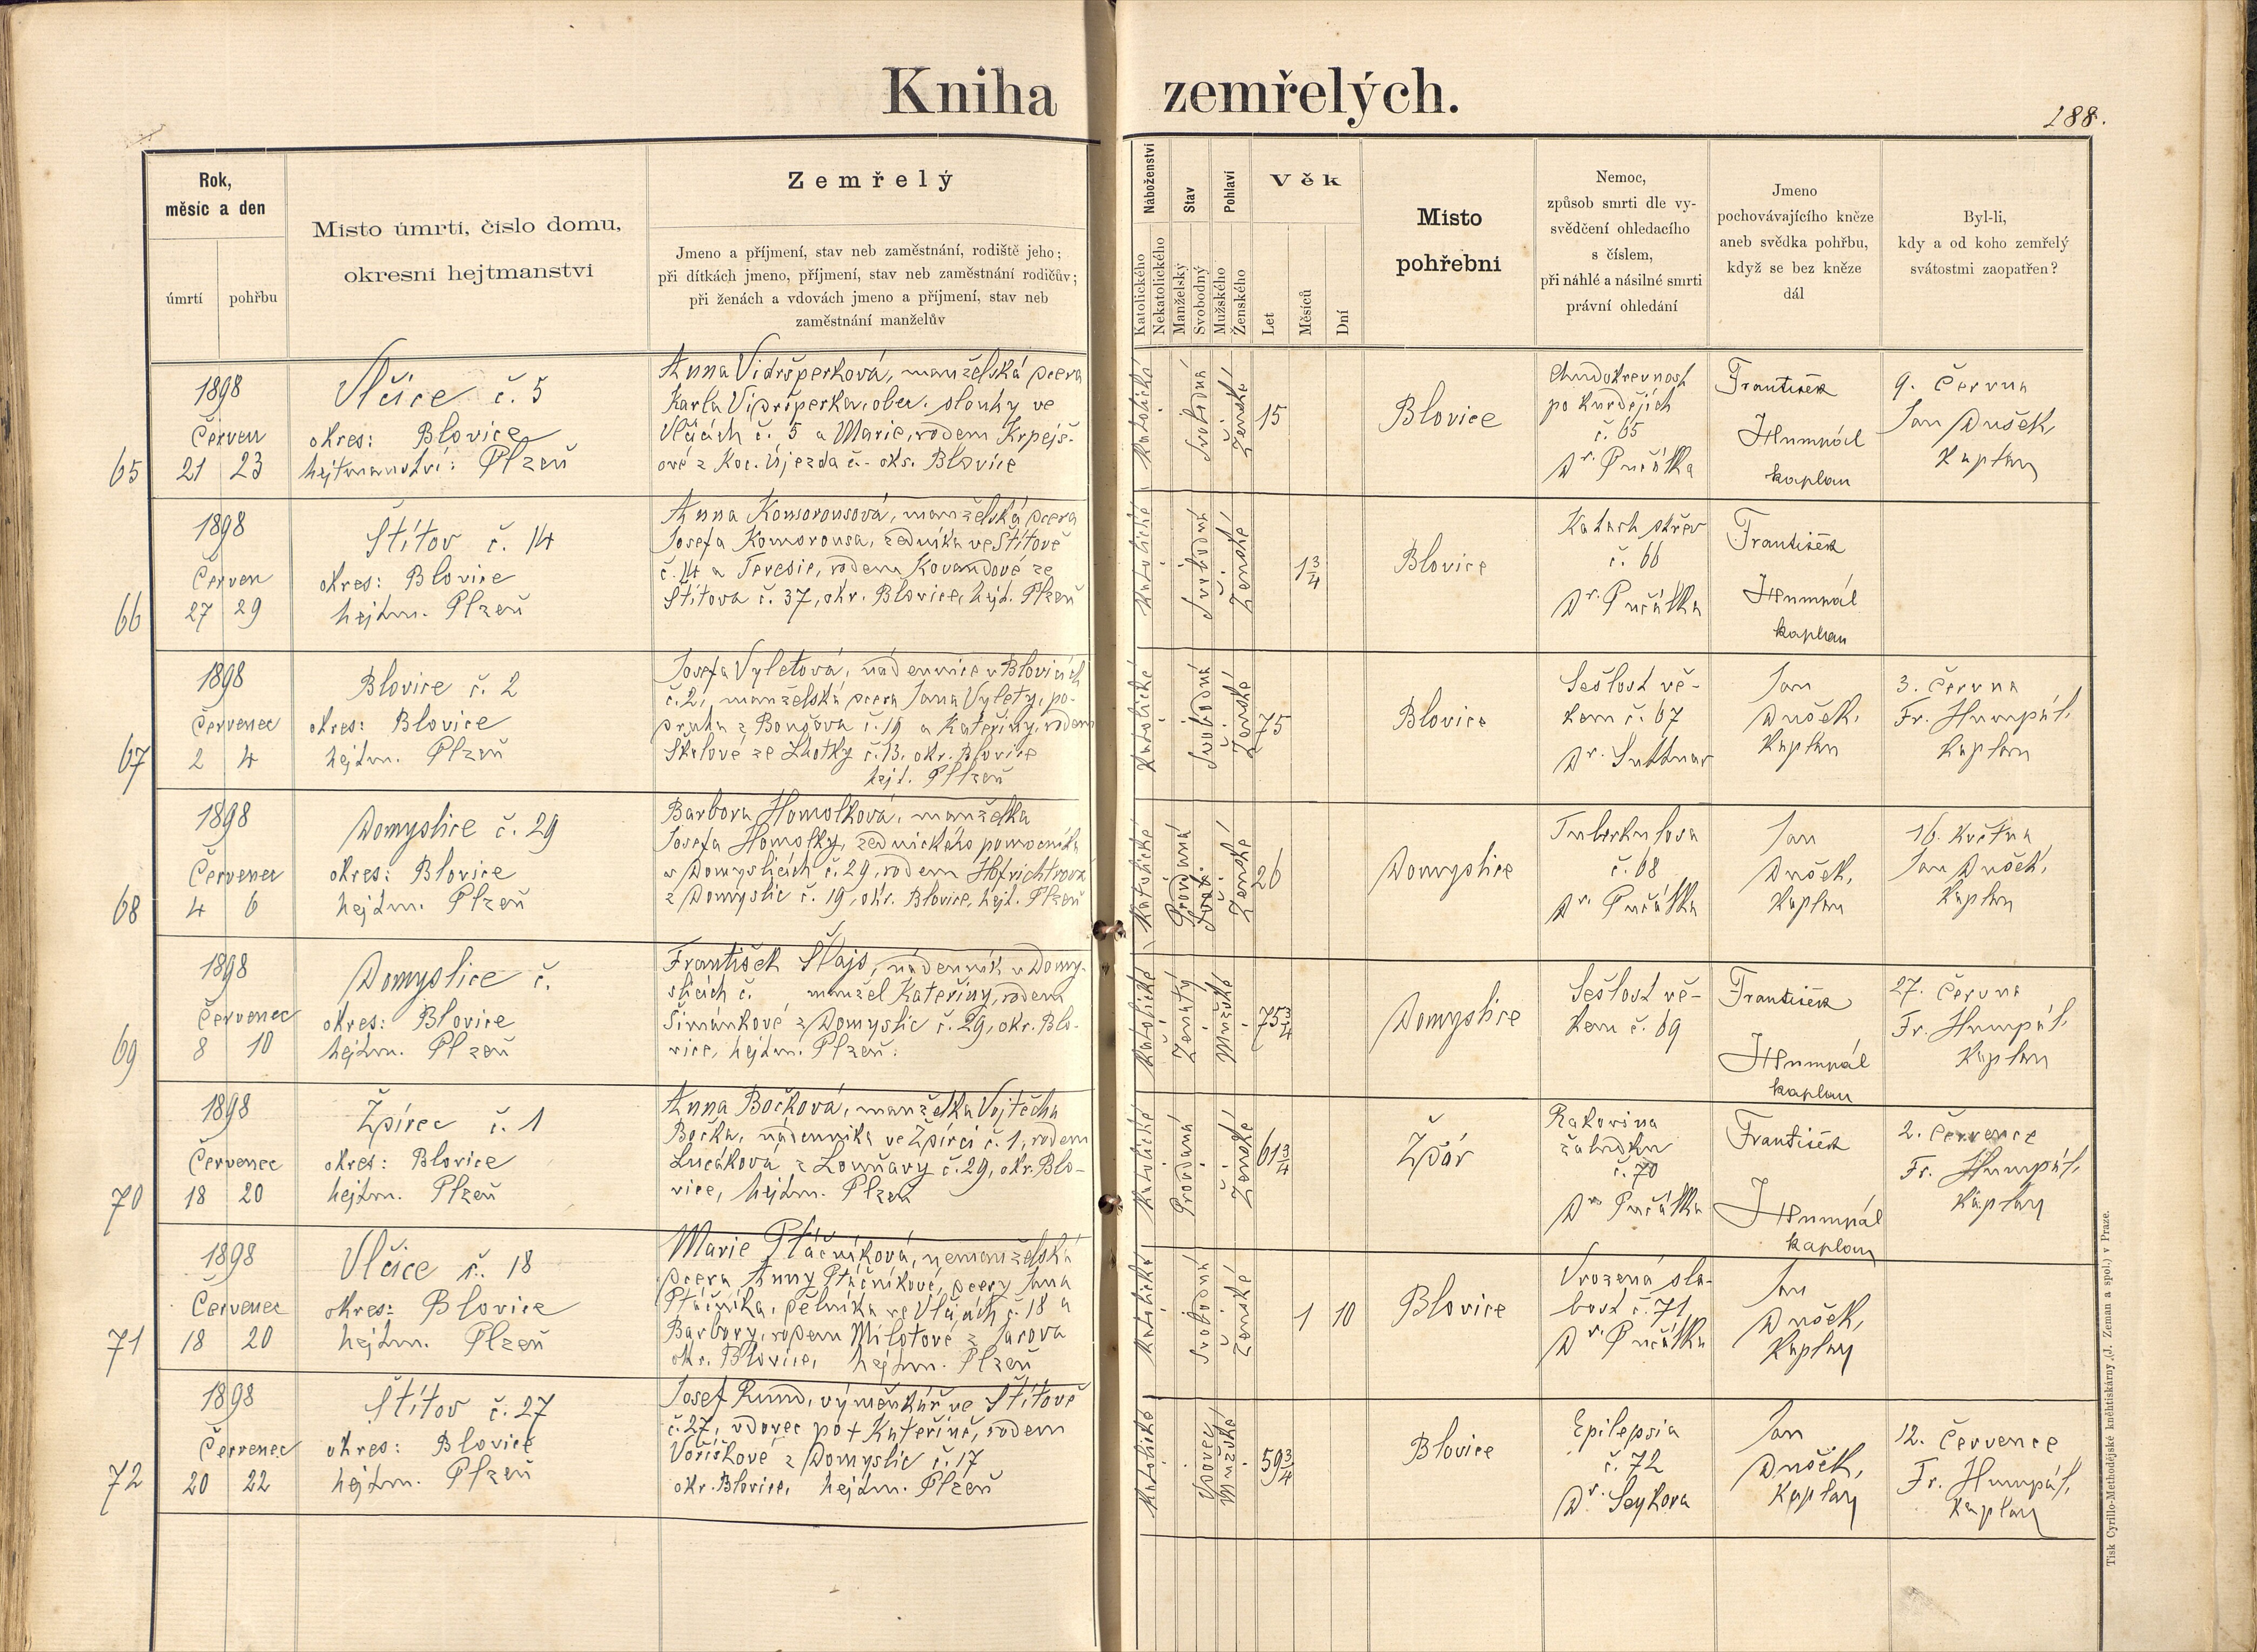 Kniha zemřelých.
188.
Rok,
měsíc a den
úmrtí
pohřbu
Místo úmrtí, číslo domu,
okresní hejtmanství
Zemřelý
Jmeno a příjmení, stav neb zaměstnání, rodiště jeho;
při dítkách jmeno, příjmení, stav neb zaměstnání rodičův;
při ženách a vdovách jmeno a příjmení, stav neb
zaměstnání manželův
Náboženství
Katolického
Nekatolického
Stav
Manželský
Svobodný
Pohlaví
Mužského
Ženského
Věk
Let
Měsíců
Dní
Místo
pohřební
Nemoc,
způsob smrti dle vy-
svědčení ohledacího
s číslem,
při náhlé a násilné smrti
právní ohledání
Jmeno
pochovávajícího kněze
aneb svědka pohřbu,
když se bez kněze
dál
Byl-li,
kdy a od koho zemřelý
svátostmi zaopatřen?
65
1898
Červen
21 23
Vlčice č. 5
okres: Blovice
hejtmanství: Plzeň
Anna Vidršperková, manželská dcera
Karla Vidršperka, obec. slouhy ve
Vlčicích č. 5 a Marie, rodem Krpejš-
ové z Koc. Újezda č. - oks. Blovice
Katolické
Svobodná
Ženské
15
Blovice
Chudokrevnost
po kurdějích
č. 65
Dr. Pučálka
František
Humpál
kaplan
9. Června
Jan Dušek,
Kaplan
66
1898
Červen
27 29
Štítov č. 14
okres: Blovice
hejtm. Plzeň
Anna Komorousová, manželská dcera
Josefa Komorousa, zedníka ve Štítově
č. 14 a Teresie, rodem Kovandové ze
Štítova č. 37, okr. Blovice, hejt. Plzeň
Katolické
Svobodná
Ženské
1 3/4
Blovice
Katarh střev
č. 66
Dr. Pučálka
František
Humpál
kaplan
67
1898
Červenec
2 4
Blovice č. 2
okres: Blovice
hejtm. Plzeň
Josefa Vyletová, nádennice v Blovicích
č. 2, manželská dcera Jana Vylety, po-
druha z Boušova č. 19 a Kateřiny, rodem
Skalové ze Lhotky č. 13, okr. Blovice
hejt. Plzeň
Katolické
Svobodná
Ženské
75
Blovice
Sešlost vě-
kem č. 67
Dr. Suttnar
Jan
Dušek,
Kaplan
3. Června
Fr. Humpál,
Kaplan
68
1898
Červenec
4 6
Domyslice č. 29
okres: Blovice
hejtm. Plzeň
Barbora Homolková, manželka
Josefa Homolky, zednického pomocníka
v Domyslicích č. 29, rodem Hofrichtrova
z Domyslic č. 19, okr. Blovice, hejt. Plzeň
Katolické
Provdaná
Ženské
26
Domyslice
Tuberkulosa
č. 68
Dr. Pučálka
Jan
Dušek,
Kaplan
16. Května
Jan Dušek,
Kaplan
69
1898
Červenec
8 10
Domyslice č.
okres: Blovice
hejtm. Plzeň
František Šlajs, nádenník v Domy-
slicích č. , manžel Kateřiny, rodem
Šimánkové z Domyslic č. 29, okr. Blo-
vice, hejtm. Plzeň.
Katolické
Ženatý
Mužské
75 3/4
Domyslice
Sešlost vě-
kem č. 69
František
Humpál
kaplan
27. Června
Fr. Humpál,
Kaplan
70
1898
Červenec
18 20
Ždírec č. 1
okres: Blovice
hejtm. Plzeň
Anna Bočková, manželka Vojtěcha
Bočka, nádenníka ve Ždírci č. 1, rodem
Lucáková z Louňavy č. 29, okr. Blo-
vice, hejtm. Plzeň
Katolické
Provdaná
Ženské
61 3/4
Ždár
Rakovina
žaludku
č. 70
Dr. Pučálka
František
Humpál
kaplan
2. Července
Fr. Humpál,
Kaplan
71
1898
Červenec
18 20
Vlčice č. 18
okres: Blovice
hejtm. Plzeň
Marie Ptáčníková, nemanželská
dcera Anny Ptáčníkové, dcery Jana
Ptáčníka, dělníka ve Vlčicích č. 18 a
Barbory, rodem Milotové z Jarova
okr. Blovice, hejtm. Plzeň
Katolické
Svobodná
Ženské
1 10
Blovice
Vrozená sla-
bost č. 71
Dr. Pučálka
Jan
Dušek,
Kaplan
72
1898
Červenec
20 22
Štítov č. 27
okres: Blovice
hejtm. Plzeň
Josef Rund, výměnkář ve Štítově
č. 27, vdovec po + Kateřině, rodem
Voříškové z Domyslic č. 17
okr. Blovice, hejtm. Plzeň
Katolické
Vdovec
Mužské
59 3/4
Blovice
Epilepsia
č. 72
Dr. Seykora
Jan
Dušek,
Kaplan
12. Července
Fr. Humpál,
Kaplan
Tisk Cyrillo-Methodějské knihtiskárny (J. Zeman a spol.) v Praze.